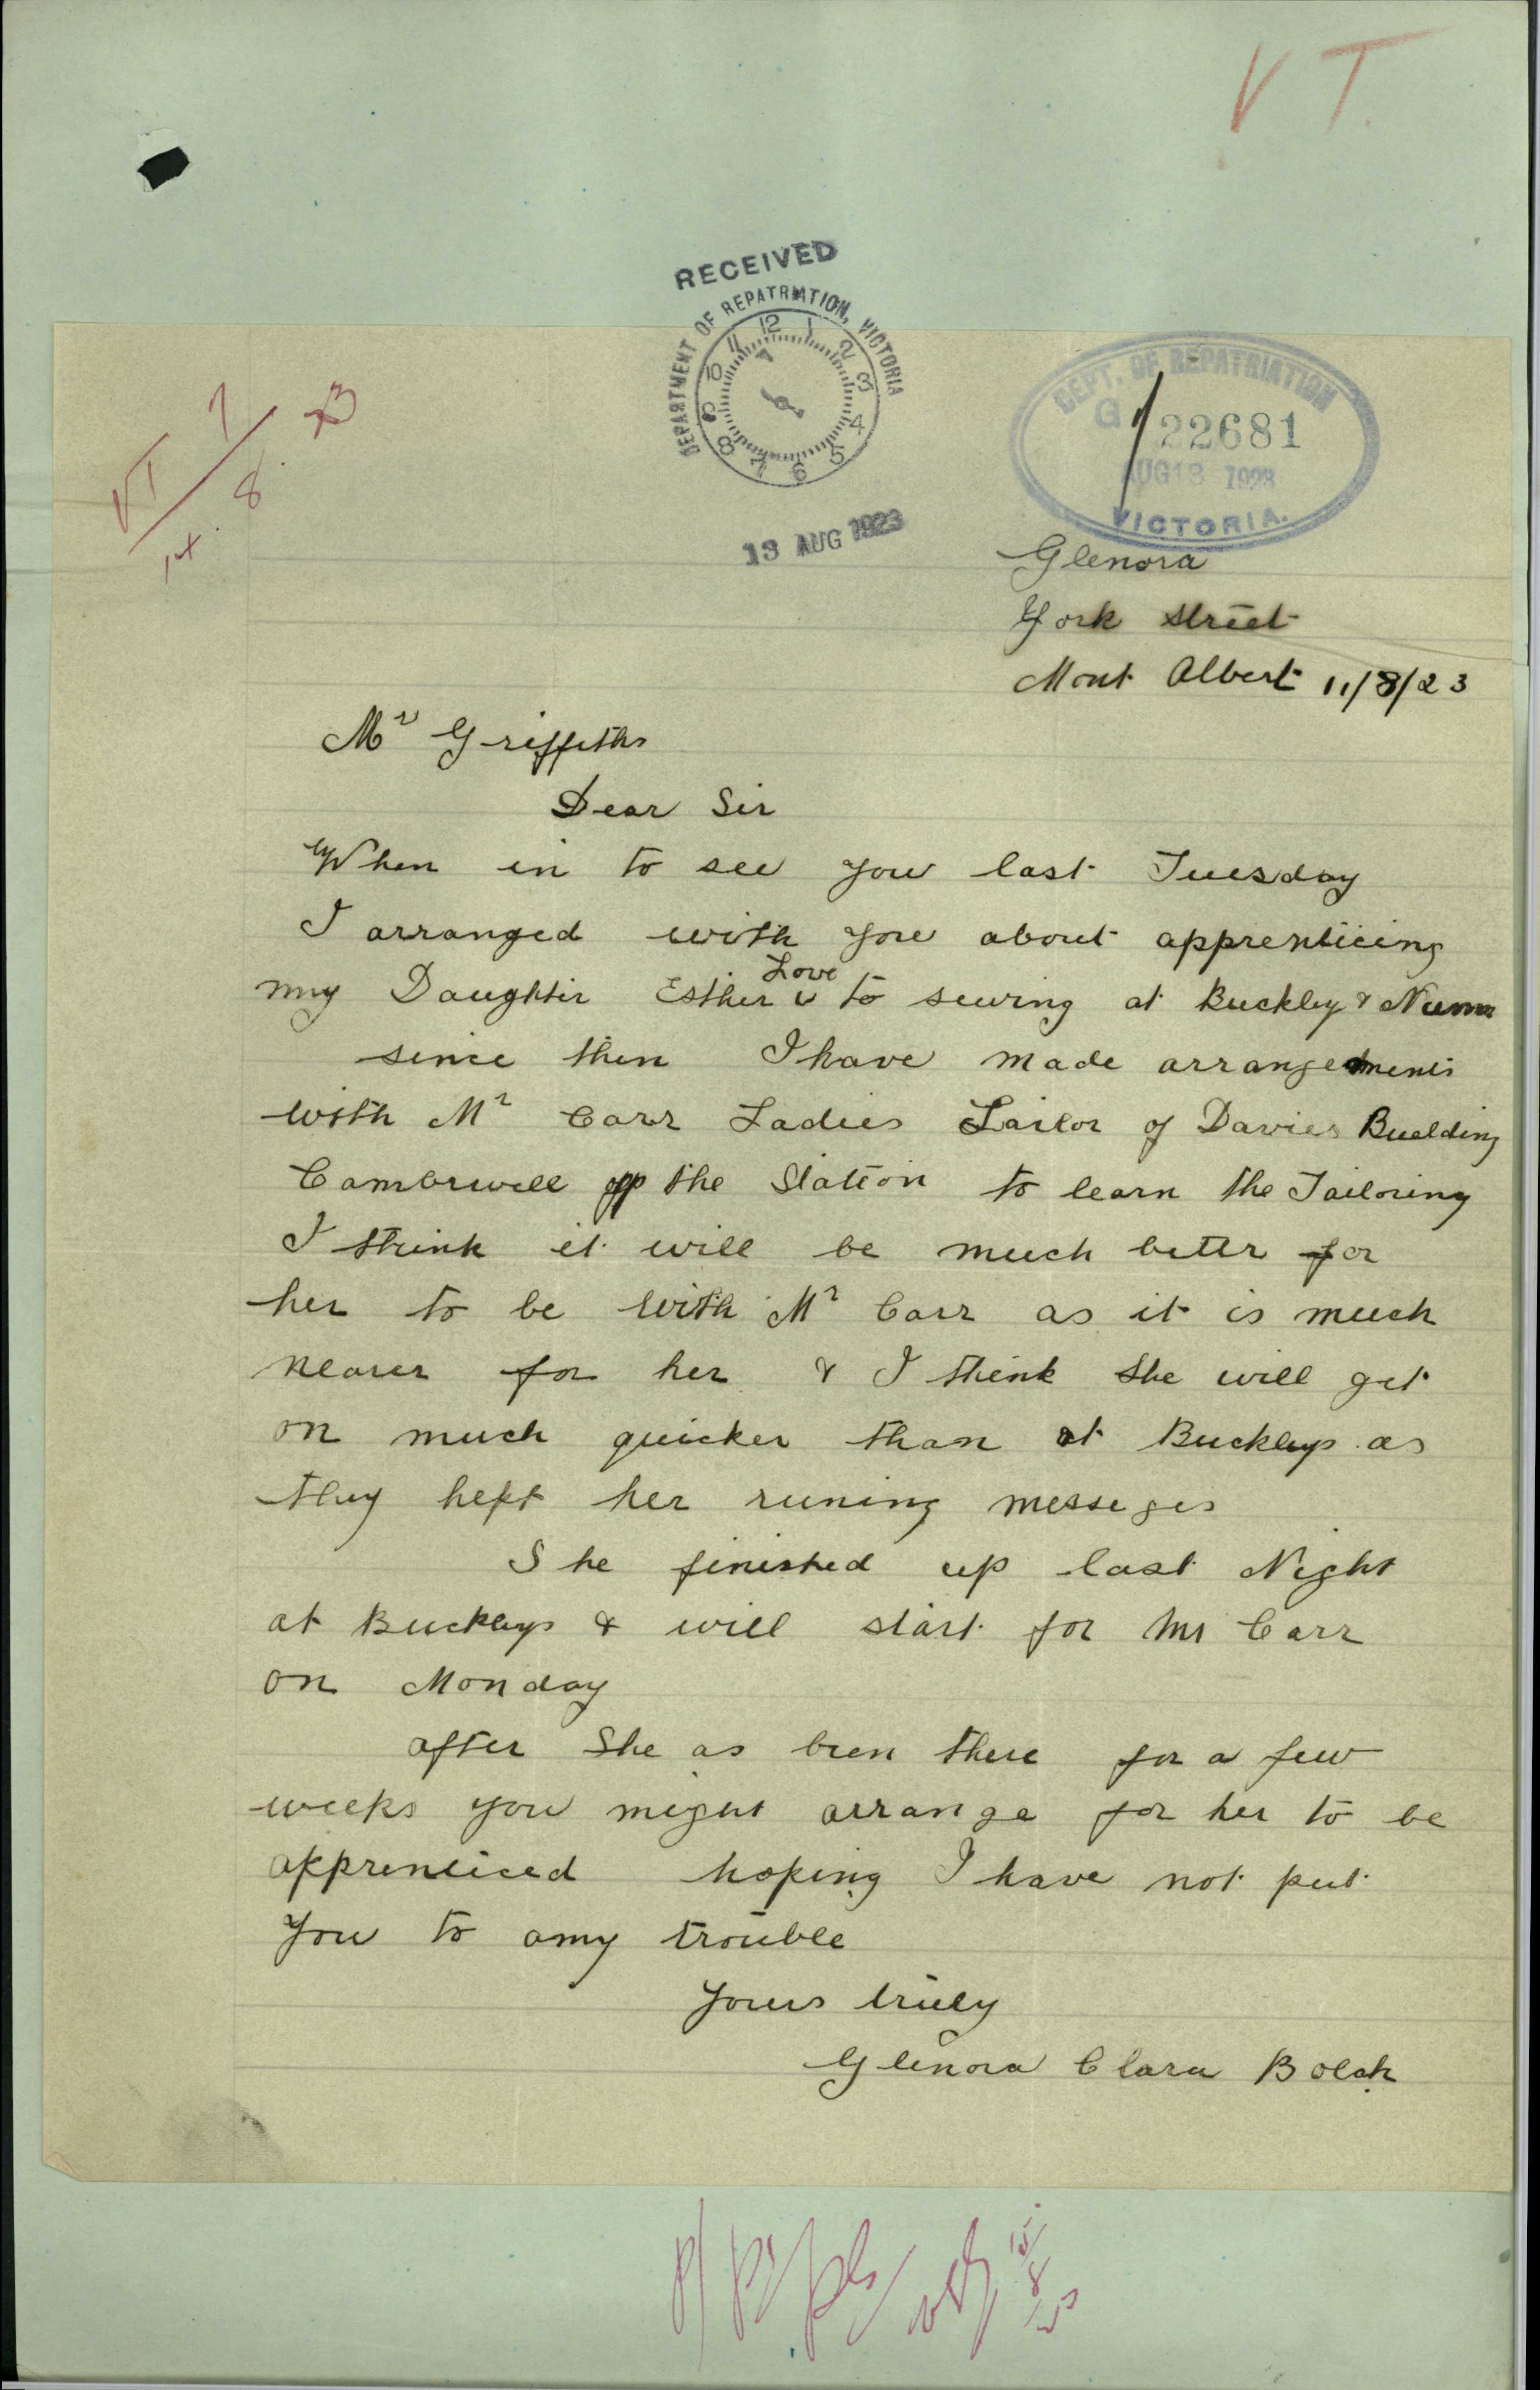 VT.
RECEIVED
DEPARTMENT OF REPATRIATION, VICTORIA
12 1 2 3 4 5 6 7 8 9 10 11
13 AUG 1923
DEPT. OF REPATRIATION
G 22681
AUG 13 1923
VICTORIA.
VT
14. 8.
Glenora
York Street
Mont Albert 11/8/23
Mr Griffiths
Dear Sir
When in to see you last Tuesday
I arranged with you about apprenticing
my Daughter Esther Love to sewing at Buckley & Nunn
since then I have made arrangements
with Mr Carr Ladies Tailor of Davies Building
Camberwell opp the Station to learn the Tailoring
I think it will be much better for
her to be with Mr Carr as it is much
nearer for her & I think she will get
on much quicker than at Buckleys as
they kept her runing messeges
She finished up last Night
at Buckleys & will start for Mr Carr
on Monday
after She as been there for a few
weeks you might arrange for her to be
apprenticed hoping I have not put
you to any trouble
Yours truly
Glenora Clara Bolch